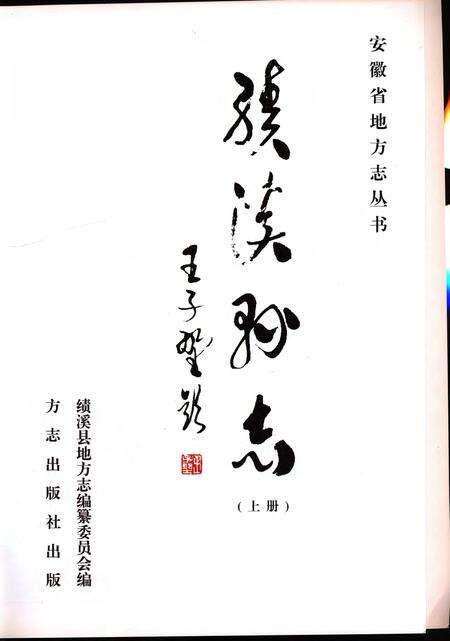 安徽省地方志丛书
绩溪县志
(上册)
王子野题
绩溪县地方志编纂委员会编
方志出版社出版